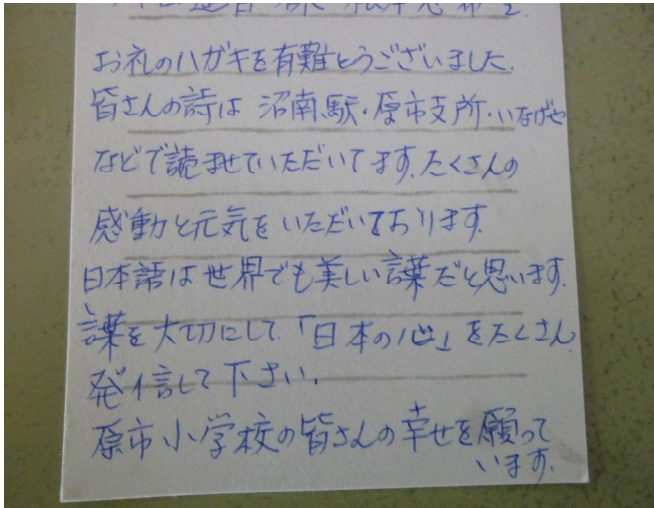 お礼のハガキを有難とうございました.
皆さんの詩は 沼南駅・原市支所・いなげや
などで読ませていただいてます.たくさんの
感動と元気をいただいております.
日本語は世界でも美しい言葉だと思います.
言葉を大切にして「日本の心」をたくさん
発信して下さい.
原市小学校の皆さんの幸せを願って
います.